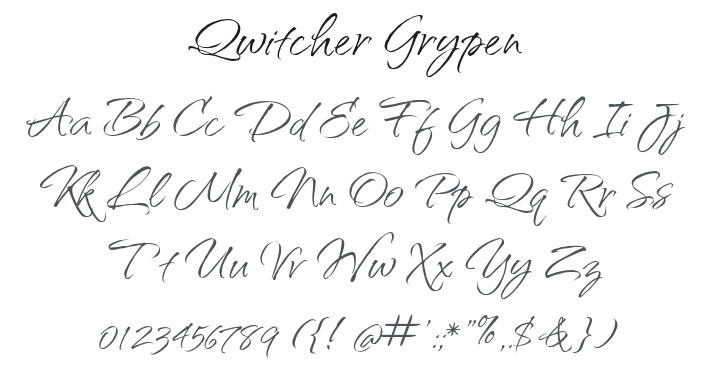 Qwitcher Grypen
Aa Bb Cc Dd Ee Ff Gg Hh Ii Jj
Kk Ll Mm Nn Oo Pp Qq Rr Ss
Tt Uu Vv Ww Xx Yy Zz
0123456789 ({! @#':;*"%,.$&})